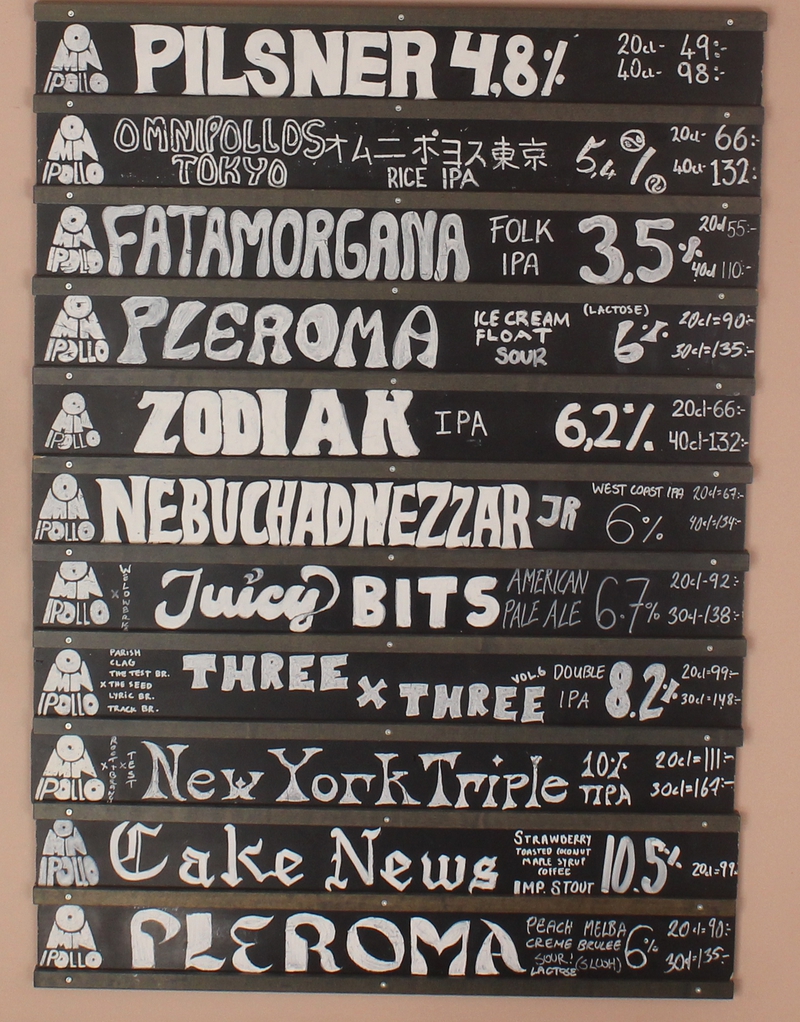 OMNIPOLLO PILSNER 4,8% 20cl- 49:-
40cl- 98:-
OMNIPOLLO OMNIPOLLOS TOKYO オムニポヨス東京 5,4% 20cl- 66:-
RICE IPA 40cl- 132:-
OMNIPOLLO FATAMORGANA FOLK IPA 3.5% 20cl 55:-
40cl 110:-
OMNIPOLLO PLEROMA ICE CREAM FLOAT SOUR (LACTOSE) 6% 20cl=90:-
30cl=135:-
OMNIPOLLO ZODIAK IPA 6,2% 20cl-66:-
40cl-132:-
OMNIPOLLO NEBUCHADNEZZAR JR WEST COAST IPA 6% 20cl=67:-
40cl=134:-
OMNIPOLLO x WELDWERKS Juicy BITS AMERICAN PALE ALE 6.7% 20cl-92:-
30cl-138:-
OMNIPOLLO x PARISH
CLAG
THE TEST BR.
THE SEED
LYRIC BR.
TRACK BR.
THREE x THREE VOL.6 DOUBLE IPA 8.2% 20cl=99:-
30cl=148:-
OMNIPOLLO x x TEST New York Triple 10% TIPA 20cl=111:-
30cl=167:-
OMNIPOLLO Cake News STRAWBERRY
TOASTED COCONUT
MAPLE SYRUP
COFFEE
IMP. STOUT 10.5% 20cl=99:-
OMNIPOLLO PLEROMA PEACH MELBA
CREME BRULEE
SOUR! (SLUSH)
LACTOSE 6% 20cl=90:-
30cl=135:-